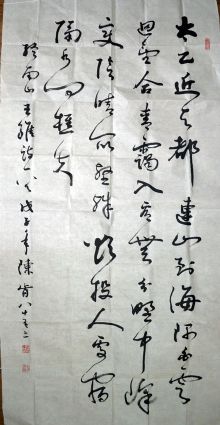 太乙近天都連山到海隅白雲
迴望合青靄入看無分野中峰
變陰晴眾壑殊欲投人處宿
隔水問樵夫
終南山王維詩一首戊子年陳八十又二